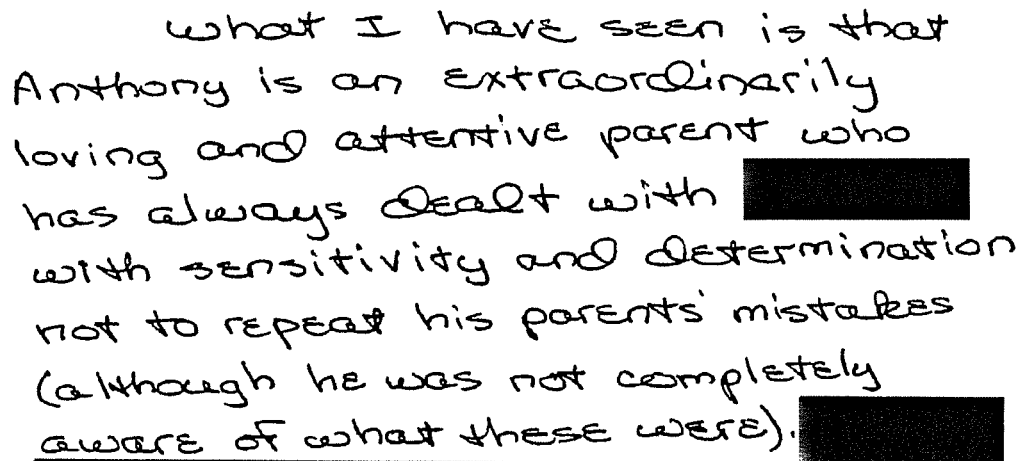 What I have seen is that
Anthony is an extraordinarily
loving and attentive parent who
has always dealt with
with sensitivity and determination
not to repeat his parents' mistakes
(although he was not completely
aware of what these were).